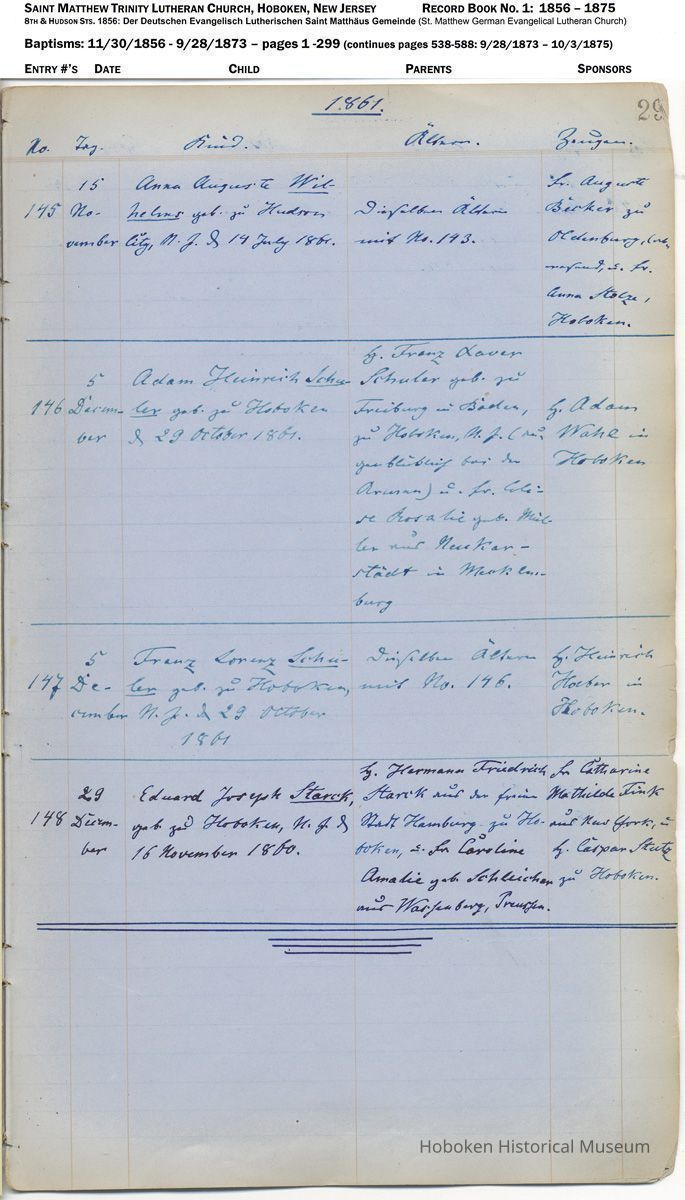 SAINT MATTHEW TRINITY LUTHERAN CHURCH, HOBOKEN, NEW JERSEY RECORD BOOK NO. 1: 1856 – 1875
8TH & HUDSON STS. 1856: Der Deutschen Evangelisch Lutherischen Saint Matthäus Gemeinde (St. Matthew German Evangelical Lutheran Church)
Baptisms: 11/30/1856 - 9/28/1873 – pages 1 -299 (continues pages 538-588: 9/28/1873 – 10/3/1875)
ENTRY #'S DATE CHILD PARENTS SPONSORS
1861.
29
No. Tag. Kind. Ältern. Zeugen.
145
15
No-
vember
Anna Auguste Wil-
helms geb. zu Hudson
City, N. J. d 14 July 1861.
Dieselben Ältern
mit No. 143.
Fr. Auguste
Becker zu
Oldenburg,
u. Fr.
Anna Stolze,
Hoboken.
146
5
Decem-
ber
Adam Heinrich Schu-
ler geb. zu Hoboken
d 29 October 1861.
H. Franz Xaver
Schuler geb. zu
Freiburg in Baden,
zu Hoboken, N. J. (au-
genblicklich bei der
Armee) u. Fr. Eli-
se Rosalie geb. Mül-
ler aus Neukar-
städt in Mecklen-
burg
H. Adam
Wahl in
Hoboken
147
5
De-
cember
Franz Lorenz Schu-
ler geb. zu Hoboken,
N. J. d 29 October
1861
Dieselben Ältern
mit No. 146.
H. Heinrich
Hoeber in
Hoboken.
148
29
Decem-
ber
Eduard Joseph Starck,
geb. zu Hoboken, N. J. d
16 November 1860.
H. Hermann Friedrich
Starck aus der freien
Stadt Hamburg zu Ho-
boken, u. Fr Caroline
Amalie geb. Schleicher
aus Wassenberg, Preussen.
Fr Catharine
Mathilde Fink
aus New York, u
H. Caspar Stutz
zu Hoboken.
Hoboken Historical Museum